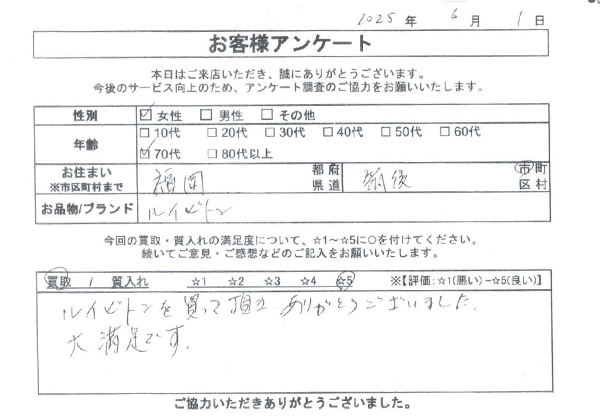 2025 年 6 月 1 日
お客様アンケート
本日はご来店いただき、誠にありがとうございます。
今後のサービス向上のため、アンケート調査のご協力をお願いいたします。
性別 ☑ 女性 □ 男性 □ その他
年齢 □ 10代 □ 20代 □ 30代 □ 40代 □ 50代 □ 60代
☑ 70代 □ 80代以上
お住まい ※市区町村まで 福岡 都府県道 筑後 市町区村
お品物/ブランド ルイビトン
今回の買取・質入れの満足度について、☆1～☆5に○を付けてください。
続いてご意見・ご感想などのご記入をお願いいたします。
買取 / 質入れ ☆1 ☆2 ☆3 ☆4 ☆5 ※【評価:☆1(悪い)-☆5(良い)】
ルイビトンを買って頂き ありがとうございました。
大満足です。
ご協力いただきありがとうございました。